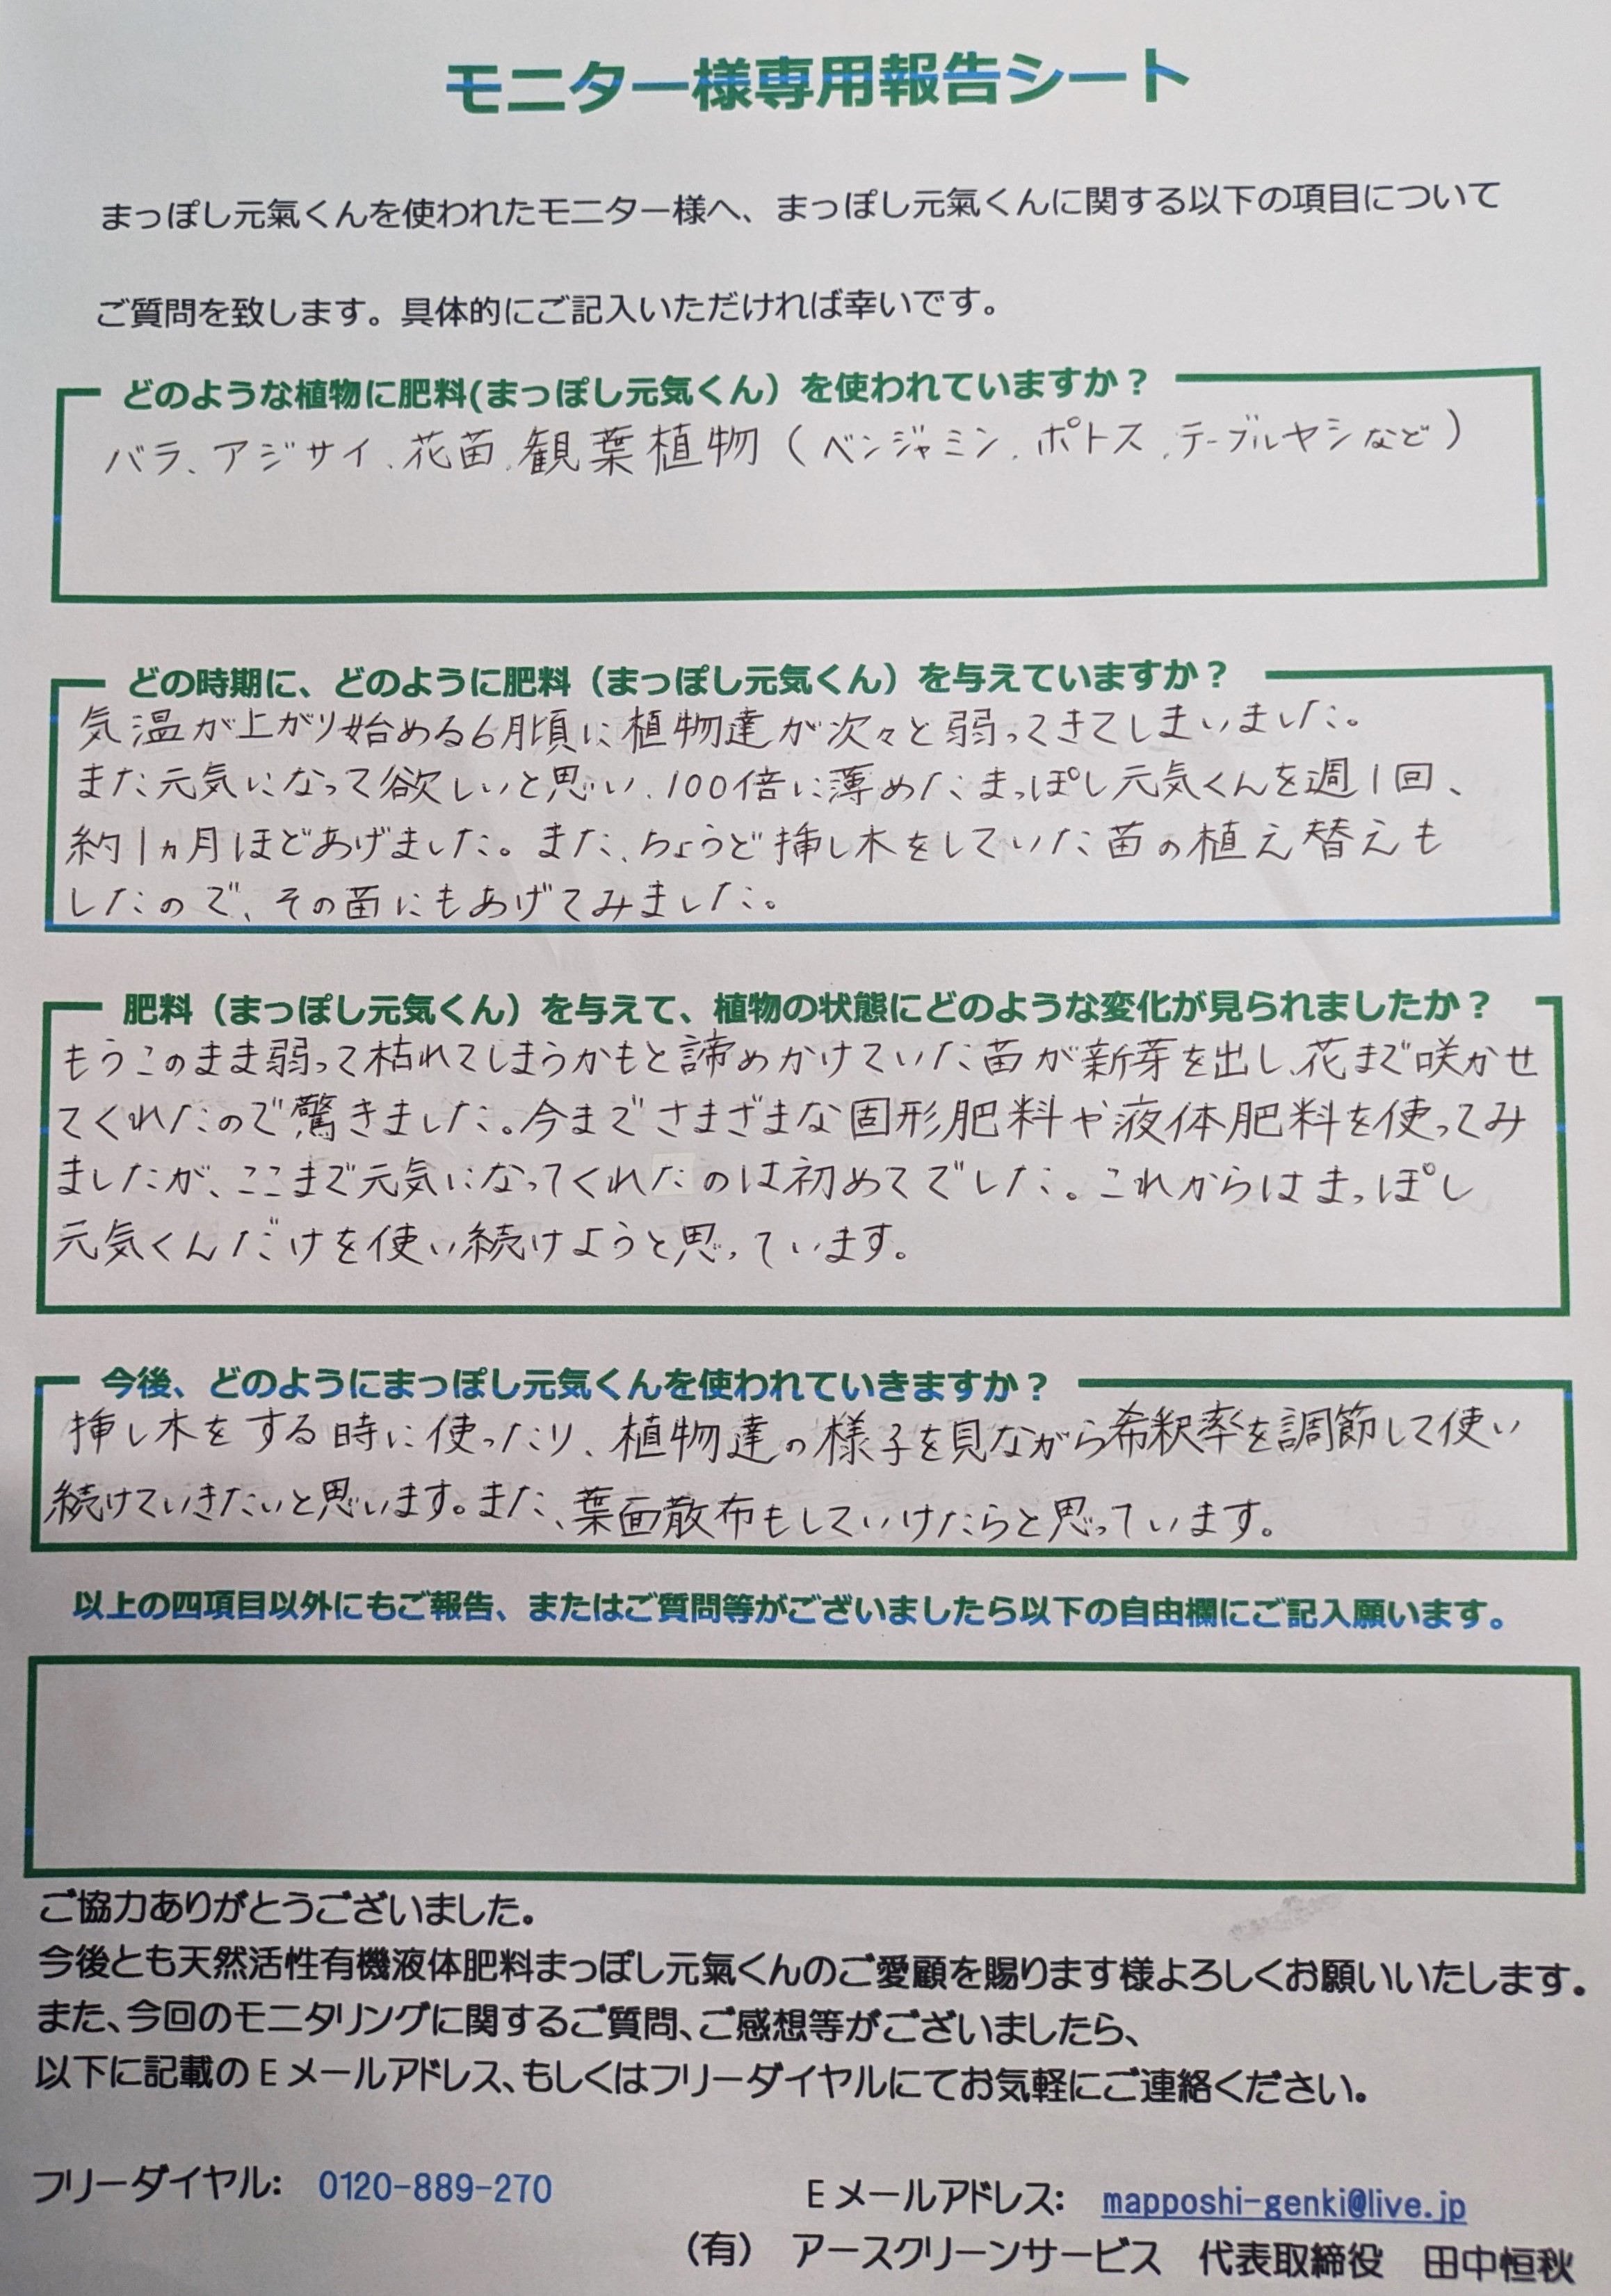 モニター様専用報告シート
まっぽし元氣くんを使われたモニター様へ、まっぽし元氣くんに関する以下の項目について
ご質問を致します。具体的にご記入いただければ幸いです。
どのような植物に肥料(まっぽし元気くん）を使われていますか？
バラ、アジサイ、花苗、観葉植物（ベンジャミン、ポトス、テーブルヤシなど）
どの時期に、どのように肥料（まっぽし元気くん）を与えていますか？
気温が上がり始める6月頃に植物達が次々と弱ってきてしまいました。
また元気になって欲しいと思い、100倍に薄めたまっぽし元気くんを週1回、
約1ヵ月ほどあげました。また、ちょうど挿し木をしていた苗の植え替えも
したので、その苗にもあげてみました。
肥料（まっぽし元気くん）を与えて、植物の状態にどのような変化が見られましたか？
もうこのまま弱って枯れてしまうかもと諦めかけていた苗が新芽を出し、花まで咲かせ
てくれたので驚きました。今までさまざまな固形肥料や液体肥料を使ってみ
ましたが、ここまで元気になってくれたのは初めてでした。これからはまっぽし
元気くんだけを使い続けようと思っています。
今後、どのようにまっぽし元気くんを使われていきますか？
挿し木をする時に使ったり、植物達の様子を見ながら希釈率を調節して使い
続けていきたいと思います。また、葉面散布もしていけたらと思っています。
以上の四項目以外にもご報告、またはご質問等がございましたら以下の自由欄にご記入願います。
ご協力ありがとうございました。
今後とも天然活性有機液体肥料まっぽし元氣くんのご愛顧を賜ります様よろしくお願いいたします。
また、今回のモニタリングに関するご質問、ご感想等がございましたら、
以下に記載のEメールアドレス、もしくはフリーダイヤルにてお気軽にご連絡ください。
フリーダイヤル: 0120-889-270 Eメールアドレス: mapposhi-genki@live.jp
（有） アースクリーンサービス 代表取締役 田中恒秋